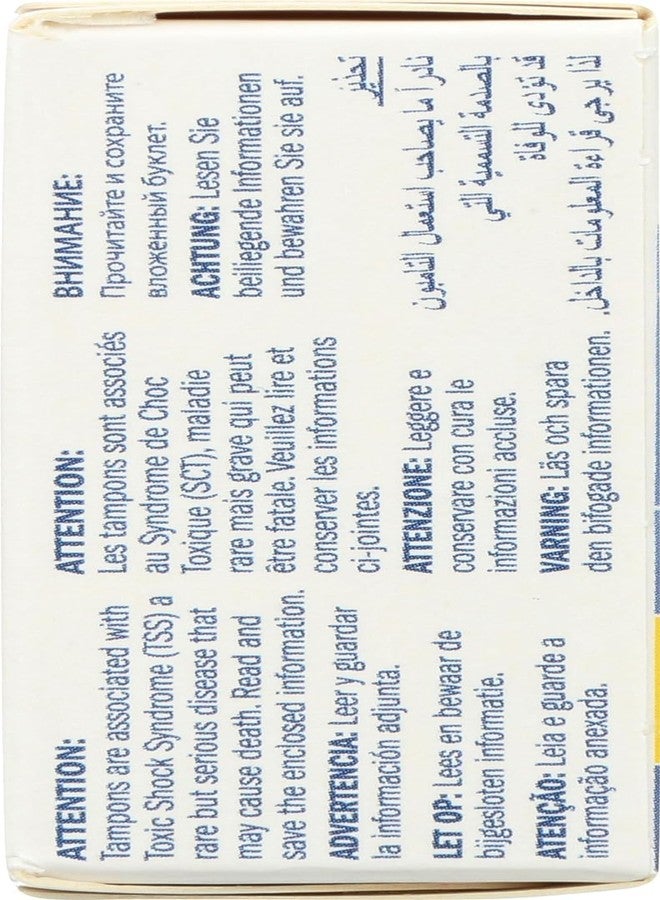 ATTENTION:
Tampons are associated with
Toxic Shock Syndrome (TSS) a
rare but serious disease that
may cause death. Read and
save the enclosed information.
ADVERTENCIA: Leer y guardar
la información adjunta.
LET OP: Lees en bewaar de
bijgesloten informatie.
ATENÇÃO: Leia e guarde a
informação anexada.
ATTENTION:
Les tampons sont associés
au Syndrome de Choc
Toxique (SCT), maladie
rare mais grave qui peut
être fatale. Veuillez lire et
conserver les informations
ci-jointes.
ATTENZIONE: Leggere e
conservare con cura le
informazioni accluse.
VARNING: Läs och spara
den bifogade informationen.
ВНИМАНИЕ:
Прочитайте и сохраните
вложенный буклет.
ACHTUNG: Lesen Sie
beiliegende Informationen
und bewahren Sie sie auf.
تحذير
نادرا ما يصاحب استعمال التامبون
بالصدمة التسممية التي
قد تودى للوفاة
لذا يرجى قراءة المعلومات بالداخل.